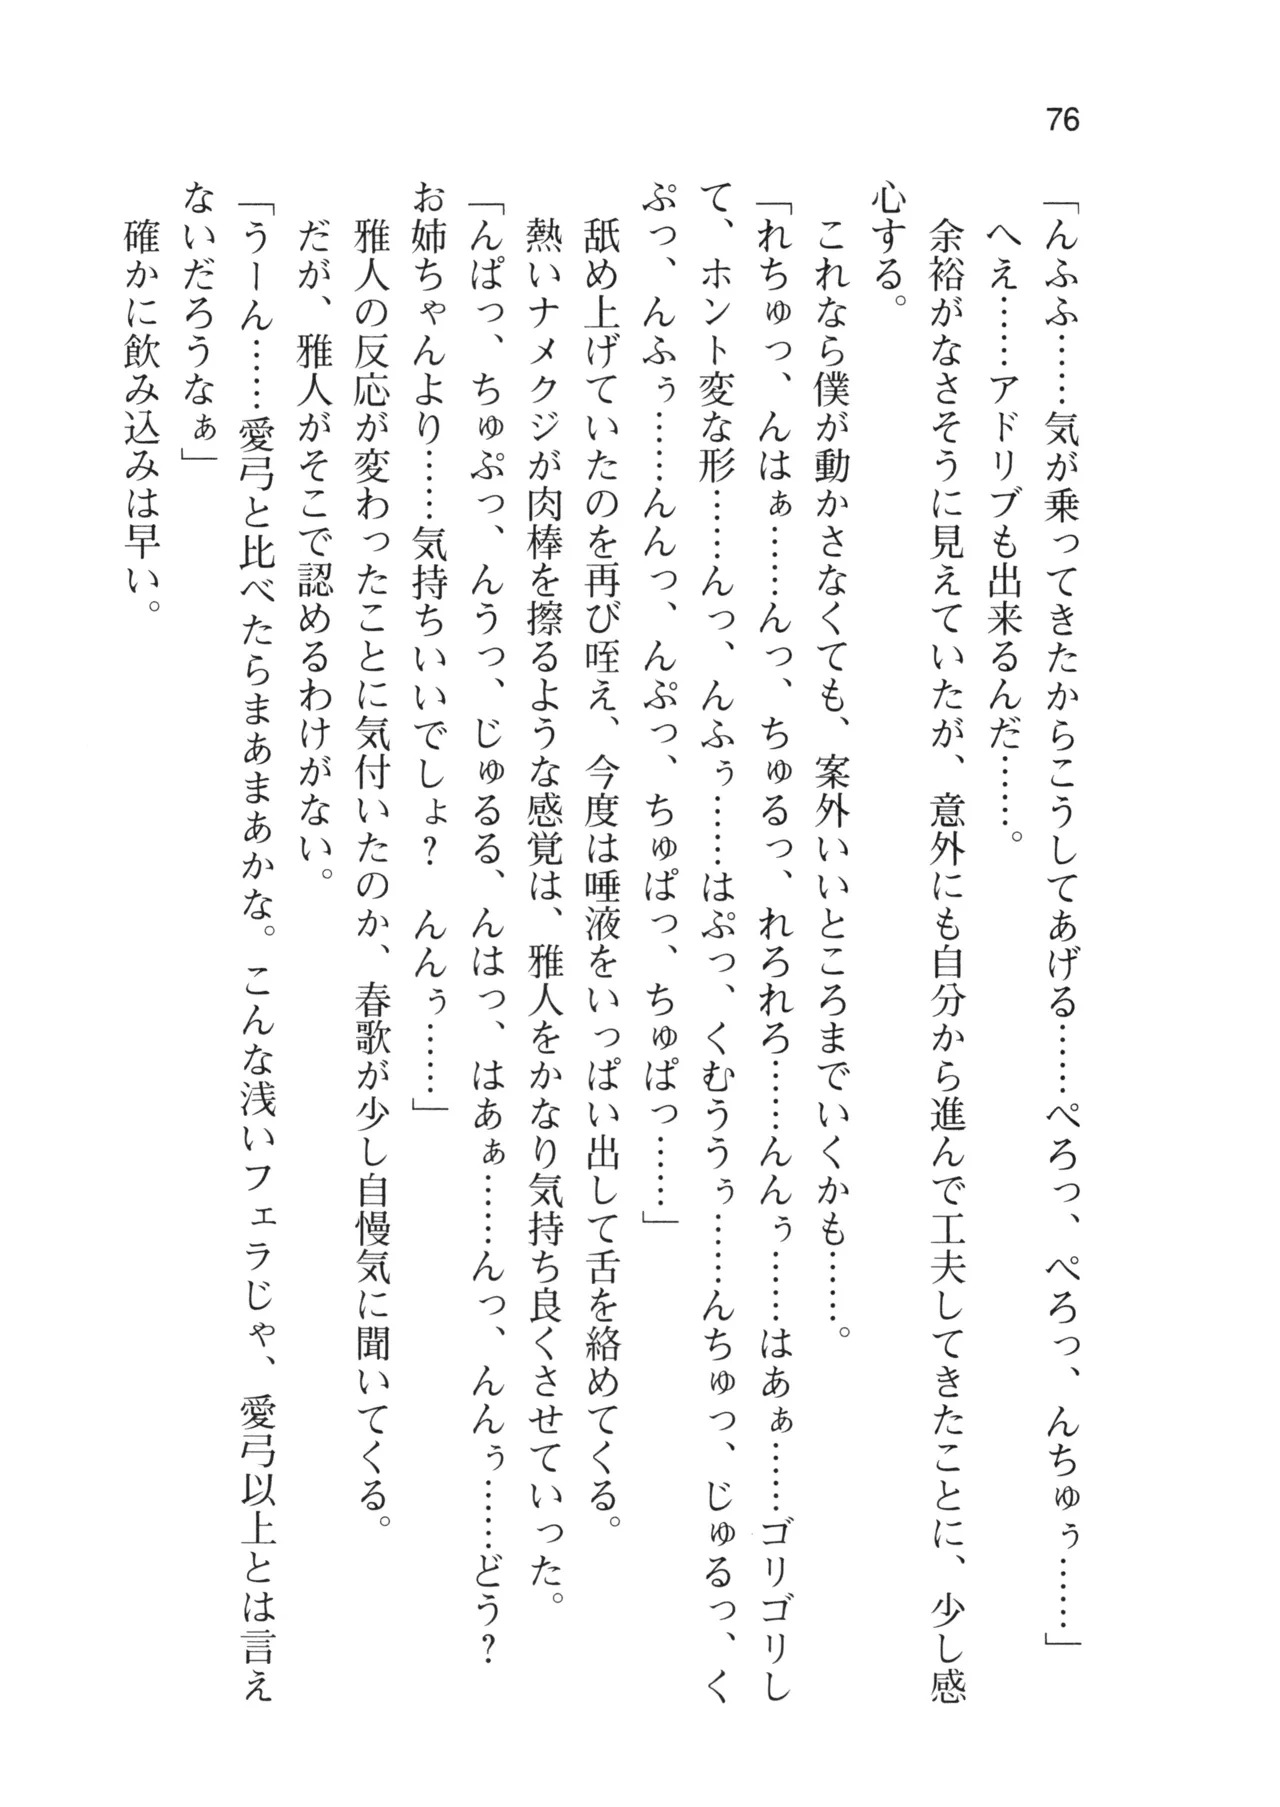 76
「んふふ……気が乗ってきたからこうしてあげる……ぺろっ、ぺろっ、んちゅぅ……」
へえ……アドリブも出来るんだ……。
余裕がなさそうに見えていたが、意外にも自分から進んで工夫してきたことに、少し感
心する。
これなら僕が動かさなくても、案外いいところまでいくかも……。
「れちゅっ、んはぁ……んっ、ちゅるっ、れろれろ……んんぅ……はあぁ……ゴリゴリし
て、ホント変な形……んっ、んふぅ……はぷっ、くむううぅ……んちゅっ、じゅるっ、く
ぷっ、んふぅ……んんっ、んぷっ、ちゅぱっ、ちゅぱっ……」
舐め上げていたのを再び咥え、今度は唾液をいっぱい出して舌を絡めてくる。
熱いナメクジが肉棒を擦るような感覚は、雅人をかなり気持ち良くさせていった。
「んぱっ、ちゅぷっ、んうっ、じゅるる、んはっ、はあぁ……んっ、んんぅ……どう？
お姉ちゃんより……気持ちいいでしょ？　んんぅ……」
雅人の反応が変わったことに気付いたのか、春歌が少し自慢気に聞いてくる。
だが、雅人がそこで認めるわけがない。
「うーん……愛弓と比べたらまあまあかな。こんな浅いフェラじゃ、愛弓以上とは言え
ないだろうなぁ」
確かに飲み込みは早い。